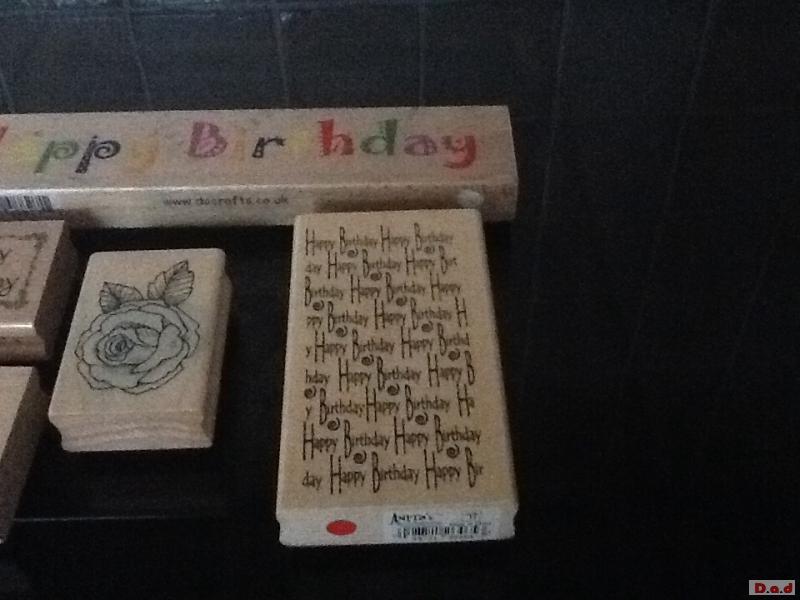 appy Birthday
www.docrafts.co.uk
Happy Birthday Happy Birthday
day Happy Birthday Happy Birt
Birthday Happy Birthday Happy
ppy Birthday Happy Birthday H
y Happy Birthday Happy Birthd
hday Happy Birthday Happy B
y Birthday Happy Birthday Ha
Happy Birthday Happy Birthday
day Happy Birthday Happy Bir
ANITA'S
D.a.d